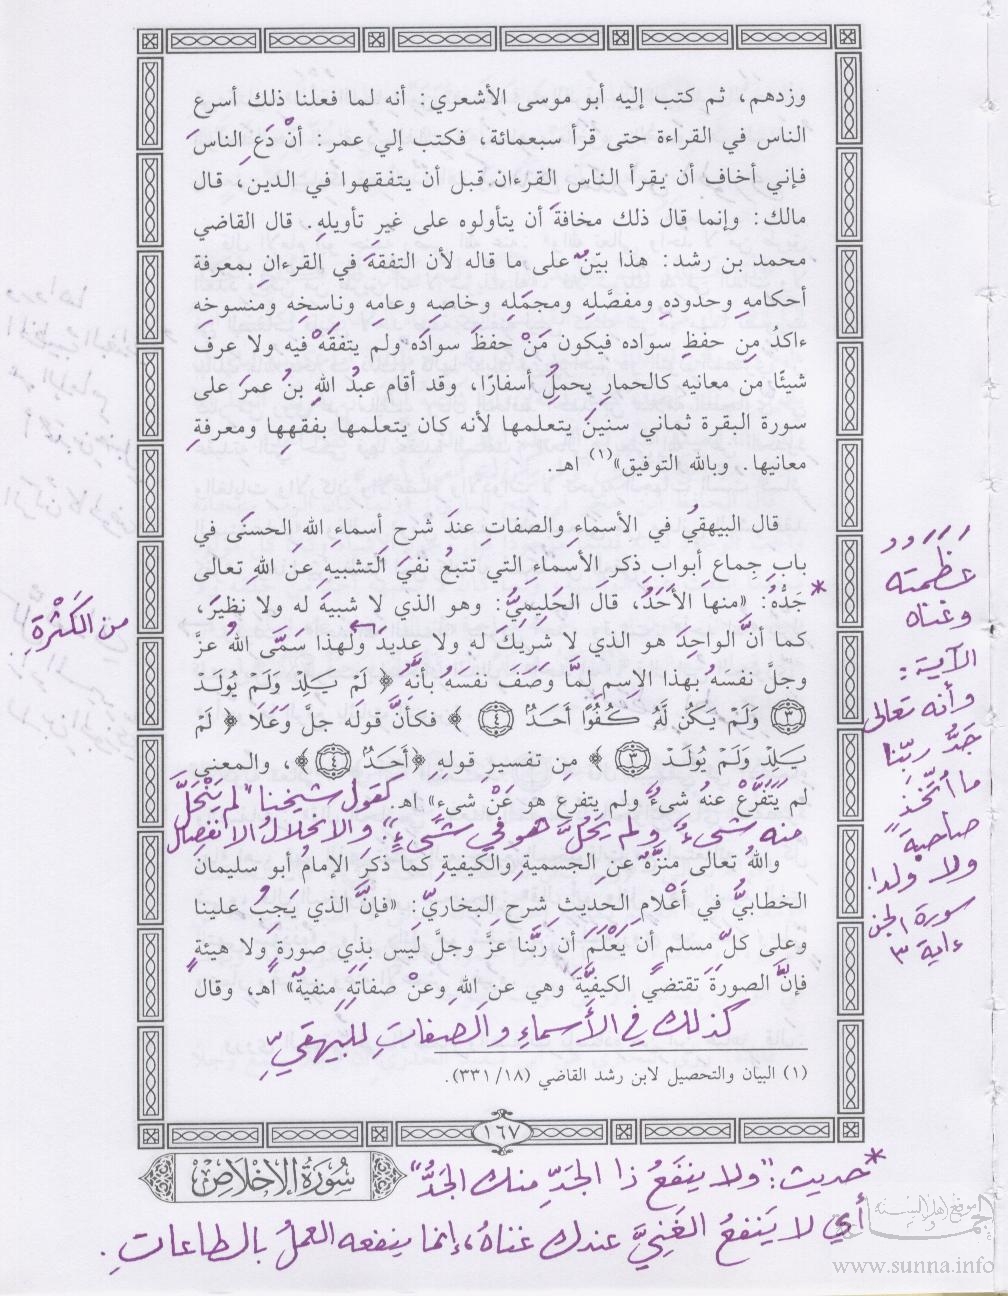 وزدهم، ثم كتب إليه أبو موسى الأشعري: أنه لما فعلنا ذلك أسرع
الناس في القراءة حتى قرأ سبعمائة، فكتب إلي عمر: أنْ دَعِ الناسَ
فإني أخاف أن يقرأ الناس القرءان قبل أن يتفقهوا في الدين، قال
مالك: وإنما قال ذلك مخافةَ أن يتأولوه على غيرِ تأويلهِ. قال القاضي
محمد بن رشد: هذا بيّنٌ على ما قاله لأن التفقهَ في القرءانِ بمعرفة
أحكامِهِ وحدودِه ومفصَّلِه ومجمَلِه وخاصِه وعامِه وناسخِه ومنسوخِه
ءاكدُ مِن حفظِ سوادِه فيكون مَنْ حفظَ سوادَه ولم يتفقهْ فيه ولا عرف
شيئًا من معانيه كالحمارِ يحملُ أسفارًا، وقد أقام عبدُ اللهِ بنُ عمرَ على
سورة البقرة ثماني سنينَ يتعلمها لأنه كان يتعلمها بفقهِها ومعرفةِ
معانيها. وبالله التوفيق»(١) اهـ.
قال البيهقيُ في الأسماءِ والصفاتِ عندَ شرحِ أسماءِ اللهِ الحسنَى في
بابِ جِماعِ أبوابِ ذكرِ الأسماءِ التي تتبعُ نفْيَ التشبيهِ عن اللهِ تعالى
جَدُّهُ: «منها الأَحَدُ، قالَ الحَلِيمِيُّ: وهو الذي لا شبيهَ له ولا نظيرَ، *
كما أنَّ الواحِدَ هو الذي لا شريكَ له ولا عديدَ ولهذا سَمَّى اللهُ عزَّ
من الكَثْرةِ.
وجلَّ نفسَهُ بهذا الاسمِ لِمَّا وصَفَ نفسَهُ بأنَّهُ ﴿ لَمْ يَلِدْ وَلَمْ يُولَدْ
﴿٣﴾ وَلَمْ يَكُن لَّهُ كُفُوًا أَحَدٌ ﴿٤﴾ ﴾ فكأنَّ قولَه جلَّ وعَلَا ﴿ لَمْ
يَلِدْ وَلَمْ يُولَدْ ﴿٣﴾ ﴾ مِن تفسيرِ قولِهِ ﴿أَحَدٌ ﴿٤﴾ ﴾، والمعنى
لم يَتَفَرَّعْ عنهُ شىءٌ ولم يتفرع هو عَنْ شىءٍ» اهـ. كقول شيخنا "لم يَنْحَلَّ
منه شىءٌ ولم يَحُلَّ هو في شىءٍ" والانحلالُ الانفصال
واللهُ تعالى منزَّهٌ عنِ الجسميةِ والكيفيةِ كما ذكرَ الإمامُ أبو سليمان
الخطابيُّ في أعْلامِ الحديثِ شرحِ البخاريّ: «فإنَّ الذي يَجِبُ علينا
وعلى كلِّ مسلمٍ أن يَعْلَمَ أن ربَّنا عزَّ وجلَّ ليسَ بذِي صورةٍ ولا هيئةٍ
فإنَّ الصورةَ تقتضي الكيفيَّةَ وهي عنِ اللهِ وعنْ صفاتِهِ منفيةٌ» اهـ، وقال
كذلك في الأسماءِ والصفاتِ للبيهقيِّ
(١) البيان والتحصيل لابن رشد القاضي (٣٣١/١٨).
١٦٧
سُورَةُ الإِخْلَاص
عظمته
وغناه
الآية:
وأنه تعالى
جَدُّ ربِّنا
ما اتَّخَذَ
صاحبةً
ولا ولدا.
سورة الجن
ءاية ٣
* حديث: "ولا ينفَعُ ذا الجَدِّ منك الجَدُّ"
أي لا يَنفعُ الغَنِيَّ عندك غناهُ، إنما ينفعه العملُ بالطاعاتِ.
موقع أهل السنة والجماعة
www.sunna.info